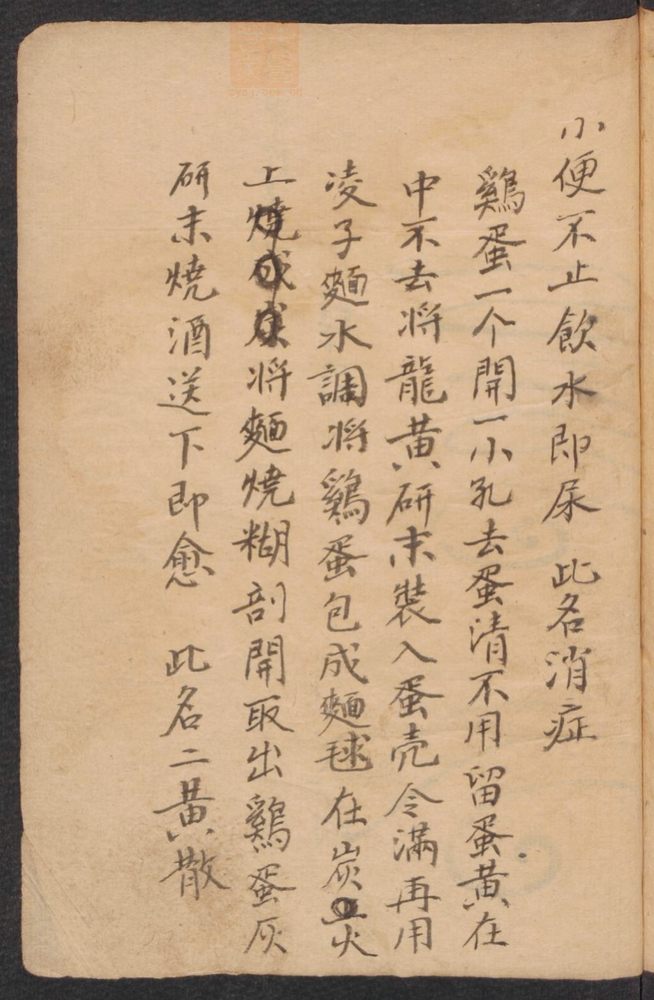 小便不止飲水即尿　此名消症
鷄蛋一个開一小孔去蛋清不用留蛋黄在
中不去将龍黄研末裝入蛋壳令滿再用
凌子麵水調将鷄蛋包成麵毬在炭火
上燒将麵燒糊剖開取出鷄蛋灰
研末燒酒送下即愈　此名二黄散